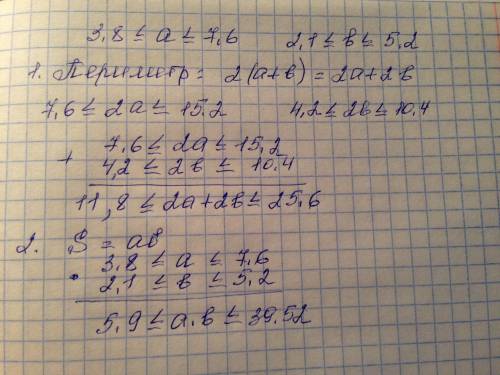 3,8 ≤ a ≤ 7,6 2,1 ≤ в ≤ 5,2
1. Периметр: 2(a+в) = 2a+2в
7,6 ≤ 2a ≤ 15,2 4,2 ≤ 2в ≤ 10,4
+ 7,6 ≤ 2a ≤ 15,2
4,2 ≤ 2в ≤ 10,4
11,8 ≤ 2a+2в ≤ 25,6
2. S = aв
3,8 ≤ a ≤ 7,6
· 2,1 ≤ в ≤ 5,2
5,9 ≤ a·в ≤ 39,52